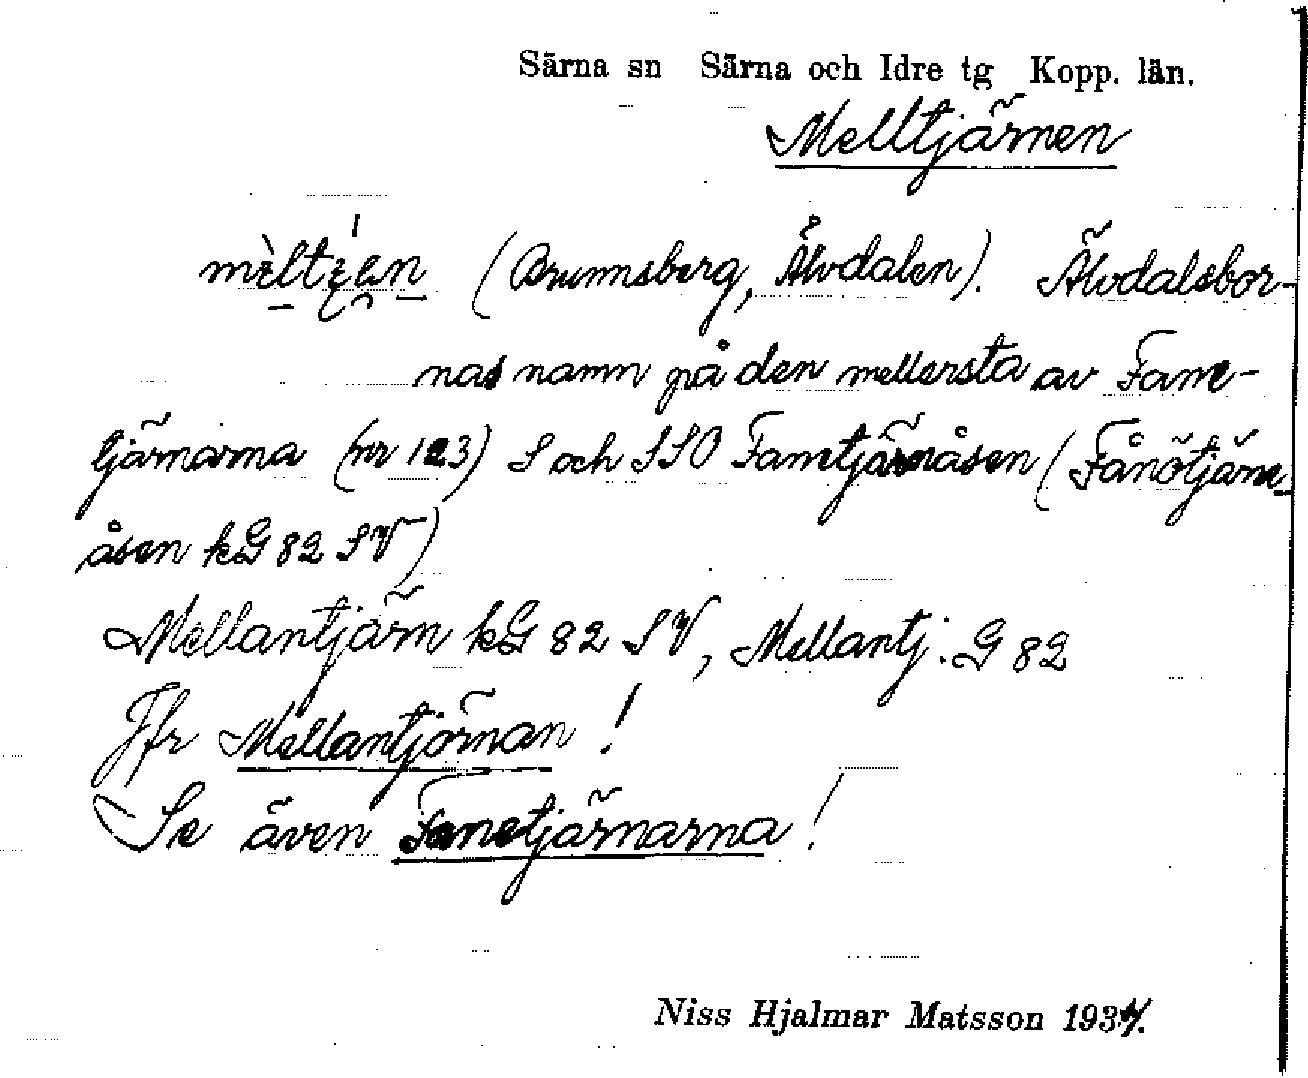 Särna sn Särna och Idre tg Kopp. län.
Melltjärnen
(Brunnsberg, Älvdalen). Älvdalsbor-
nas namn på den mellersta av Fame-
tjärnarna (nr 123) S och SSO Fametjärnåsen (Fånötjärn-
åsen kG 82 SV)
Mellantjärn kG 82 SV, Mellantj. G 82
Jfr Mellantjörnan!
Se även Fanetjärnarna!
Niss Hjalmar Matsson 1934.